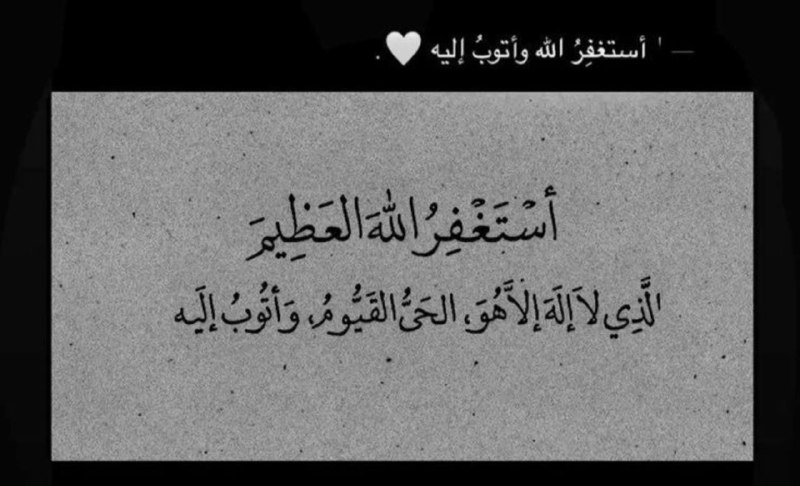 — ' أستغفِرُ الله وأتوبُ إليه 🤍 .
أسْتَغْفِرُ اللهَ العَظِيمَ
الَّذِي لاَ إلَهَ إلاَّ هُوَ، الحَيُّ القَيُّومُ، وَأتُوبُ إلَيه